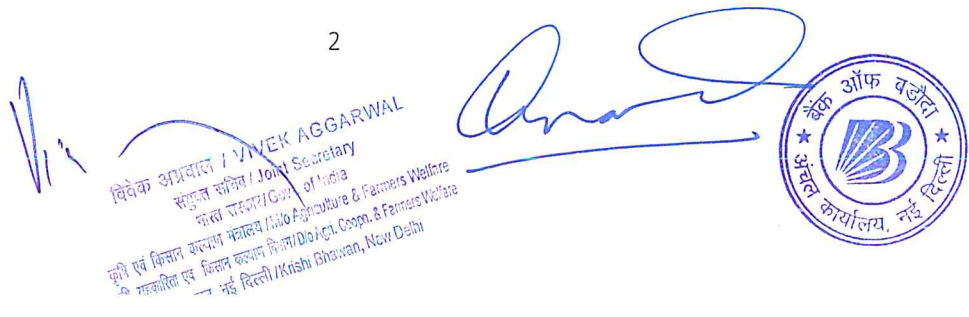 2
विवेक अग्रवाल / VIVEK AGGARWAL
संयुक्त सचिव / Joint Secretary
भारत सरकार/Govt. of India
कृषि एवं किसान कल्याण मंत्रालय / M/o Agriculture & Farmers Welfare
सहकारिता एवं किसान कल्याण विभाग/D/o Agri. Coopn. & Farmers Welfare
नई दिल्ली/Krishi Bhawan, New Delhi
बैंक ऑफ बड़ौदा
अंचल कार्यालय, नई दिल्ली